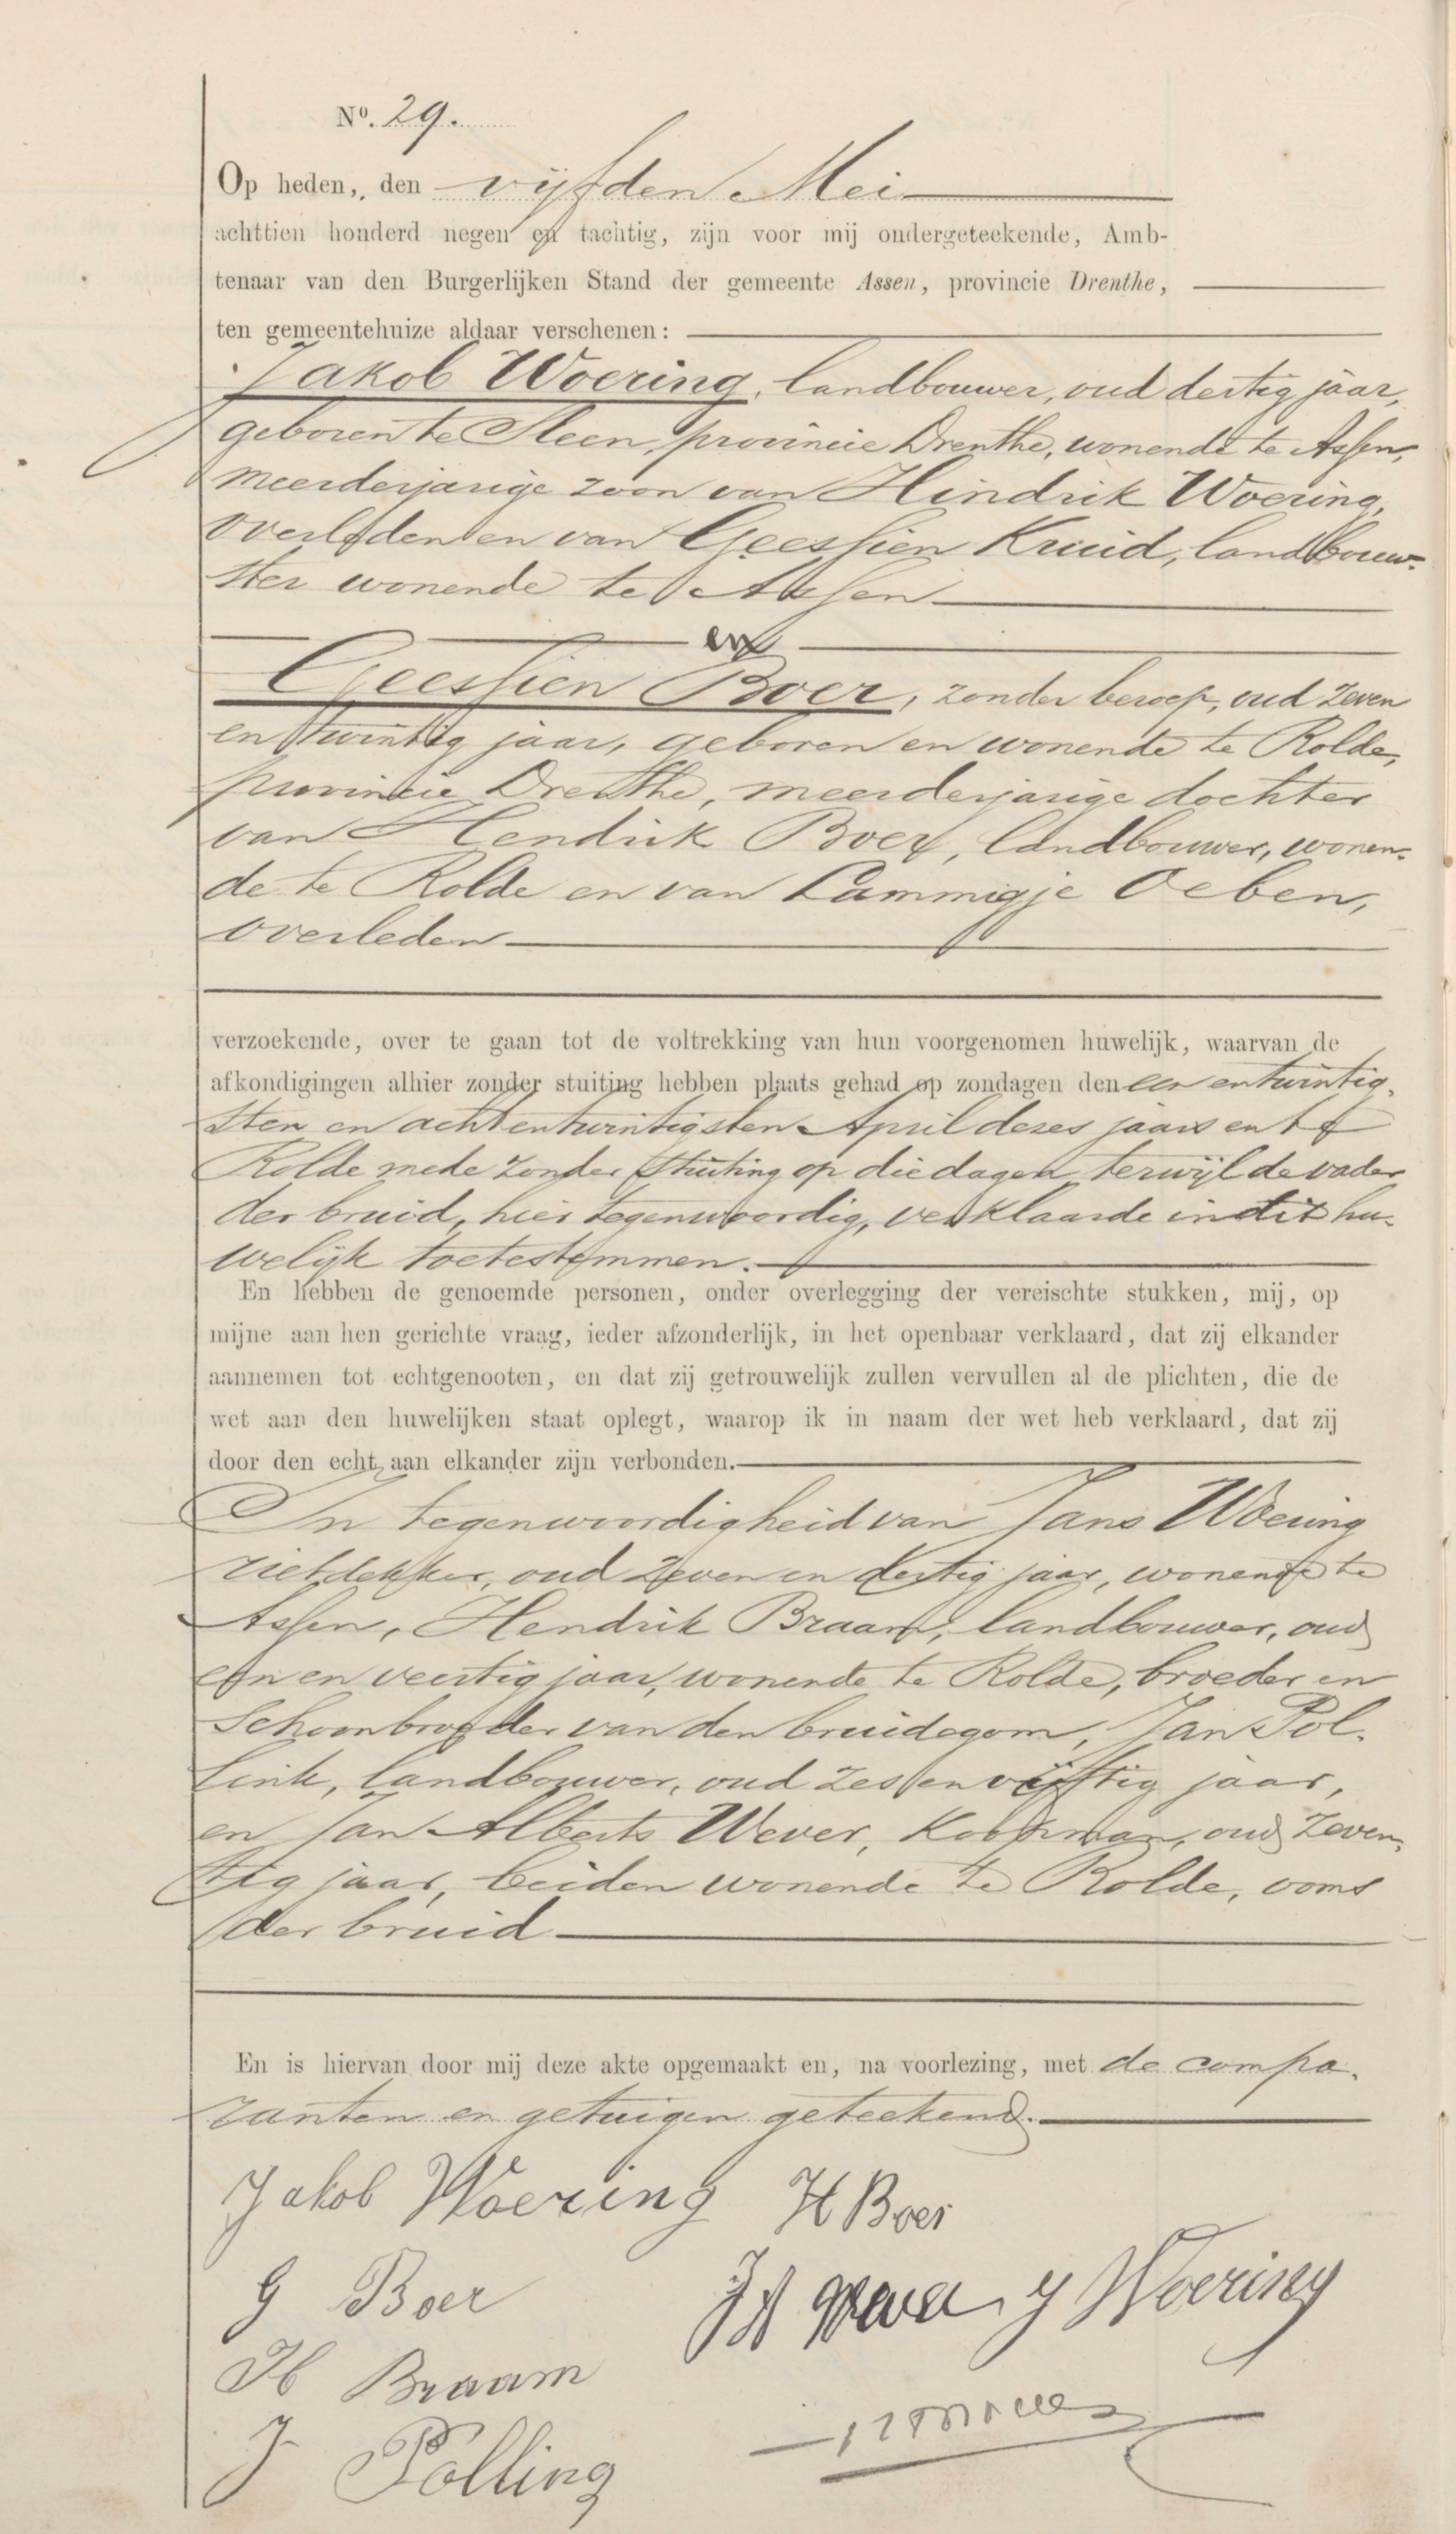 Nº. 29.
Op heden, den vijfden Mei
achttien honderd negen en tachtig, zijn voor mij ondergeteekende, Amb-
tenaar van den Burgerlijken Stand der gemeente Assen, provincie Drenthe,
ten gemeentehuize aldaar verschenen:
Jakob Woering, landbouwer, oud dertig jaar,
geboren te Sleen, provincie Drenthe, wonende te Assen,
meerderjarige zoon van Hindrik Woering,
overleden en van Geessien Kruid, landbouw-
ster wonende te Assen
en
Geessien Boer, zonder beroep, oud zeven
en twintig jaar, geboren en wonende te Rolde,
provincie Drenthe, meerderjarige dochter
van Hendrik Boer, landbouwer, wonen-
de te Rolde en van Lammigje Oeben,
overleden
verzoekende, over te gaan tot de voltrekking van hun voorgenomen huwelijk, waarvan de
afkondigingen alhier zonder stuiting hebben plaats gehad op zondagen den een en twintig-
sten en acht en twintigsten April dezes jaars en te
Rolde mede zonder stuiting op die dagen, terwijl de vader
der bruid, hier tegenwoordig, verklaarde in dit hu-
welijk toetestemmen.
En hebben de genoemde personen, onder overlegging der vereischte stukken, mij, op
mijne aan hen gerichte vraag, ieder afzonderlijk, in het openbaar verklaard, dat zij elkander
aannemen tot echtgenooten, en dat zij getrouwelijk zullen vervullen al de plichten, die de
wet aan den huwelijken staat oplegt, waarop ik in naam der wet heb verklaard, dat zij
door den echt aan elkander zijn verbonden.
In tegenwoordigheid van Jans Woering
rietdekker, oud zeven en dertig jaar, wonende te
Assen, Hendrik Braam, landbouwer, oud
een en veertig jaar, wonende te Rolde, broeder en
schoonbroeder van den bruidegom, Jan Pol-
link, landbouwer, oud zes en vijftig jaar,
en Jan Alberts Wever, koopman, oud zeven-
tig jaar, beiden wonende te Rolde, ooms
der bruid
En is hiervan door mij deze akte opgemaakt en, na voorlezing, met de compa-
ranten en getuigen geteekend.
Jakob Woering H Boer
G Boer J A Wever J Woering
H Braam
J Polling